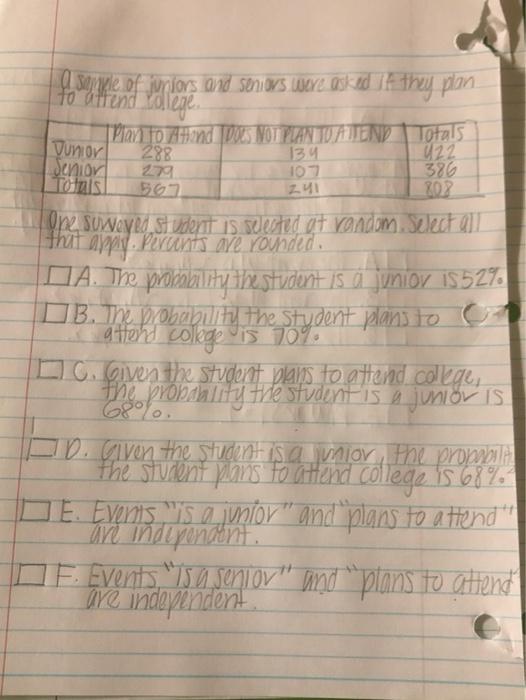 A sample of juniors and seniors were asked if they plan
to attend college.
Plan to Attend DOES NOT PLAN TO ATTEND Totals
Junior 288 134 422
Senior 279 107 386
Totals 567 241 808
One surveyed student is selected at random. Select all
that apply. Percents are rounded.
A. The probability the student is a junior is 52%
B. The probability the student plans to
attend college is 70%.
C. Given the student plans to attend college,
the probability the student is a junior is
68%.
D. Given the student is a junior, the probabilit
the student plans to attend college is 68%.
E. Events "is a junior" and "plans to attend"
are independent.
F. Events "is a senior" and "plans to attend
are independent.